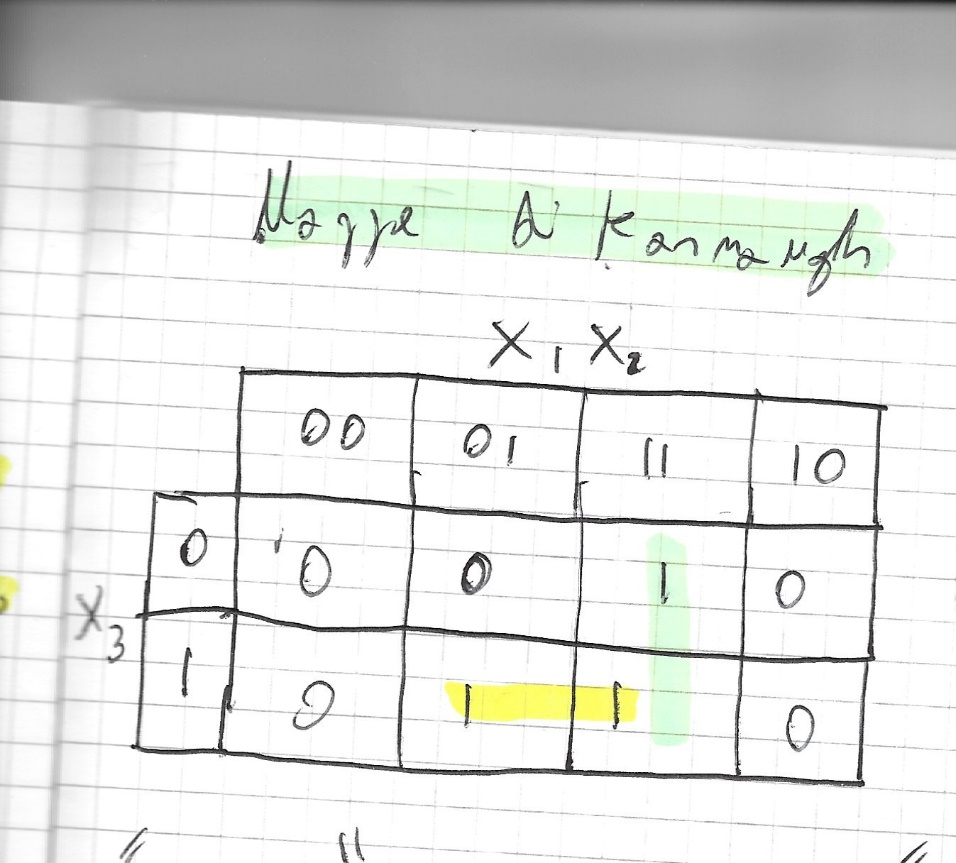 Mappe di Karnaugh
X1 X2
00 01 11 10
0 0 0 1 0
X3
1 0 1 1 0